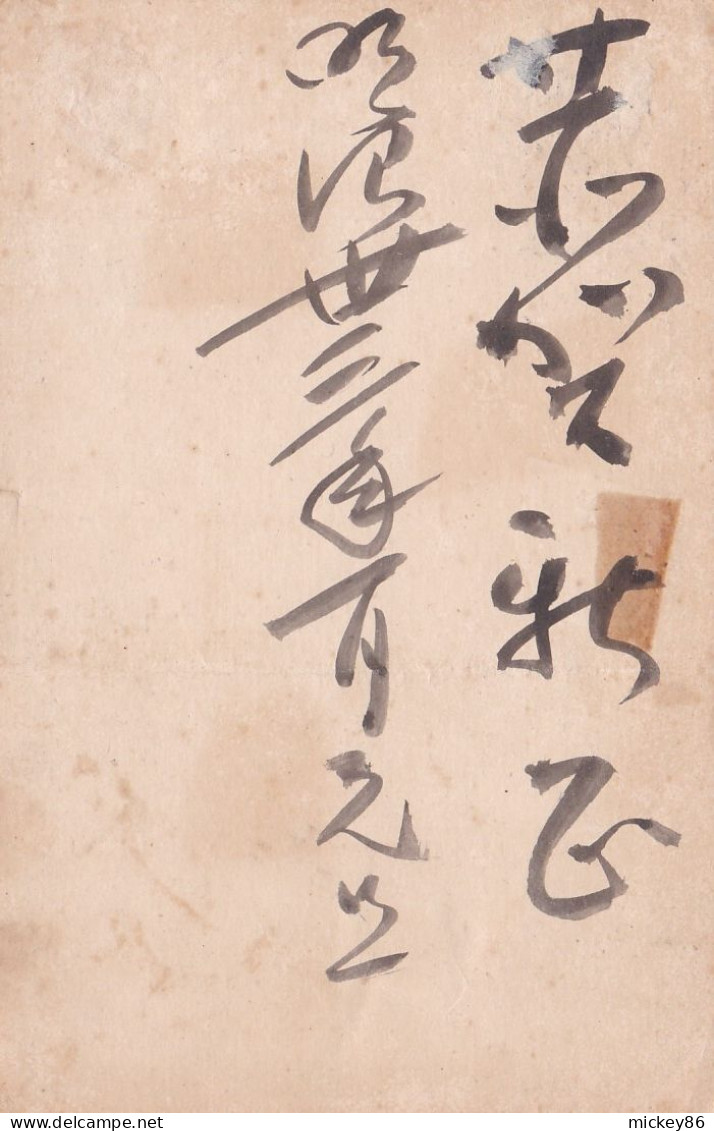 恭賀新正
明治卅三年一月元旦
mickey86